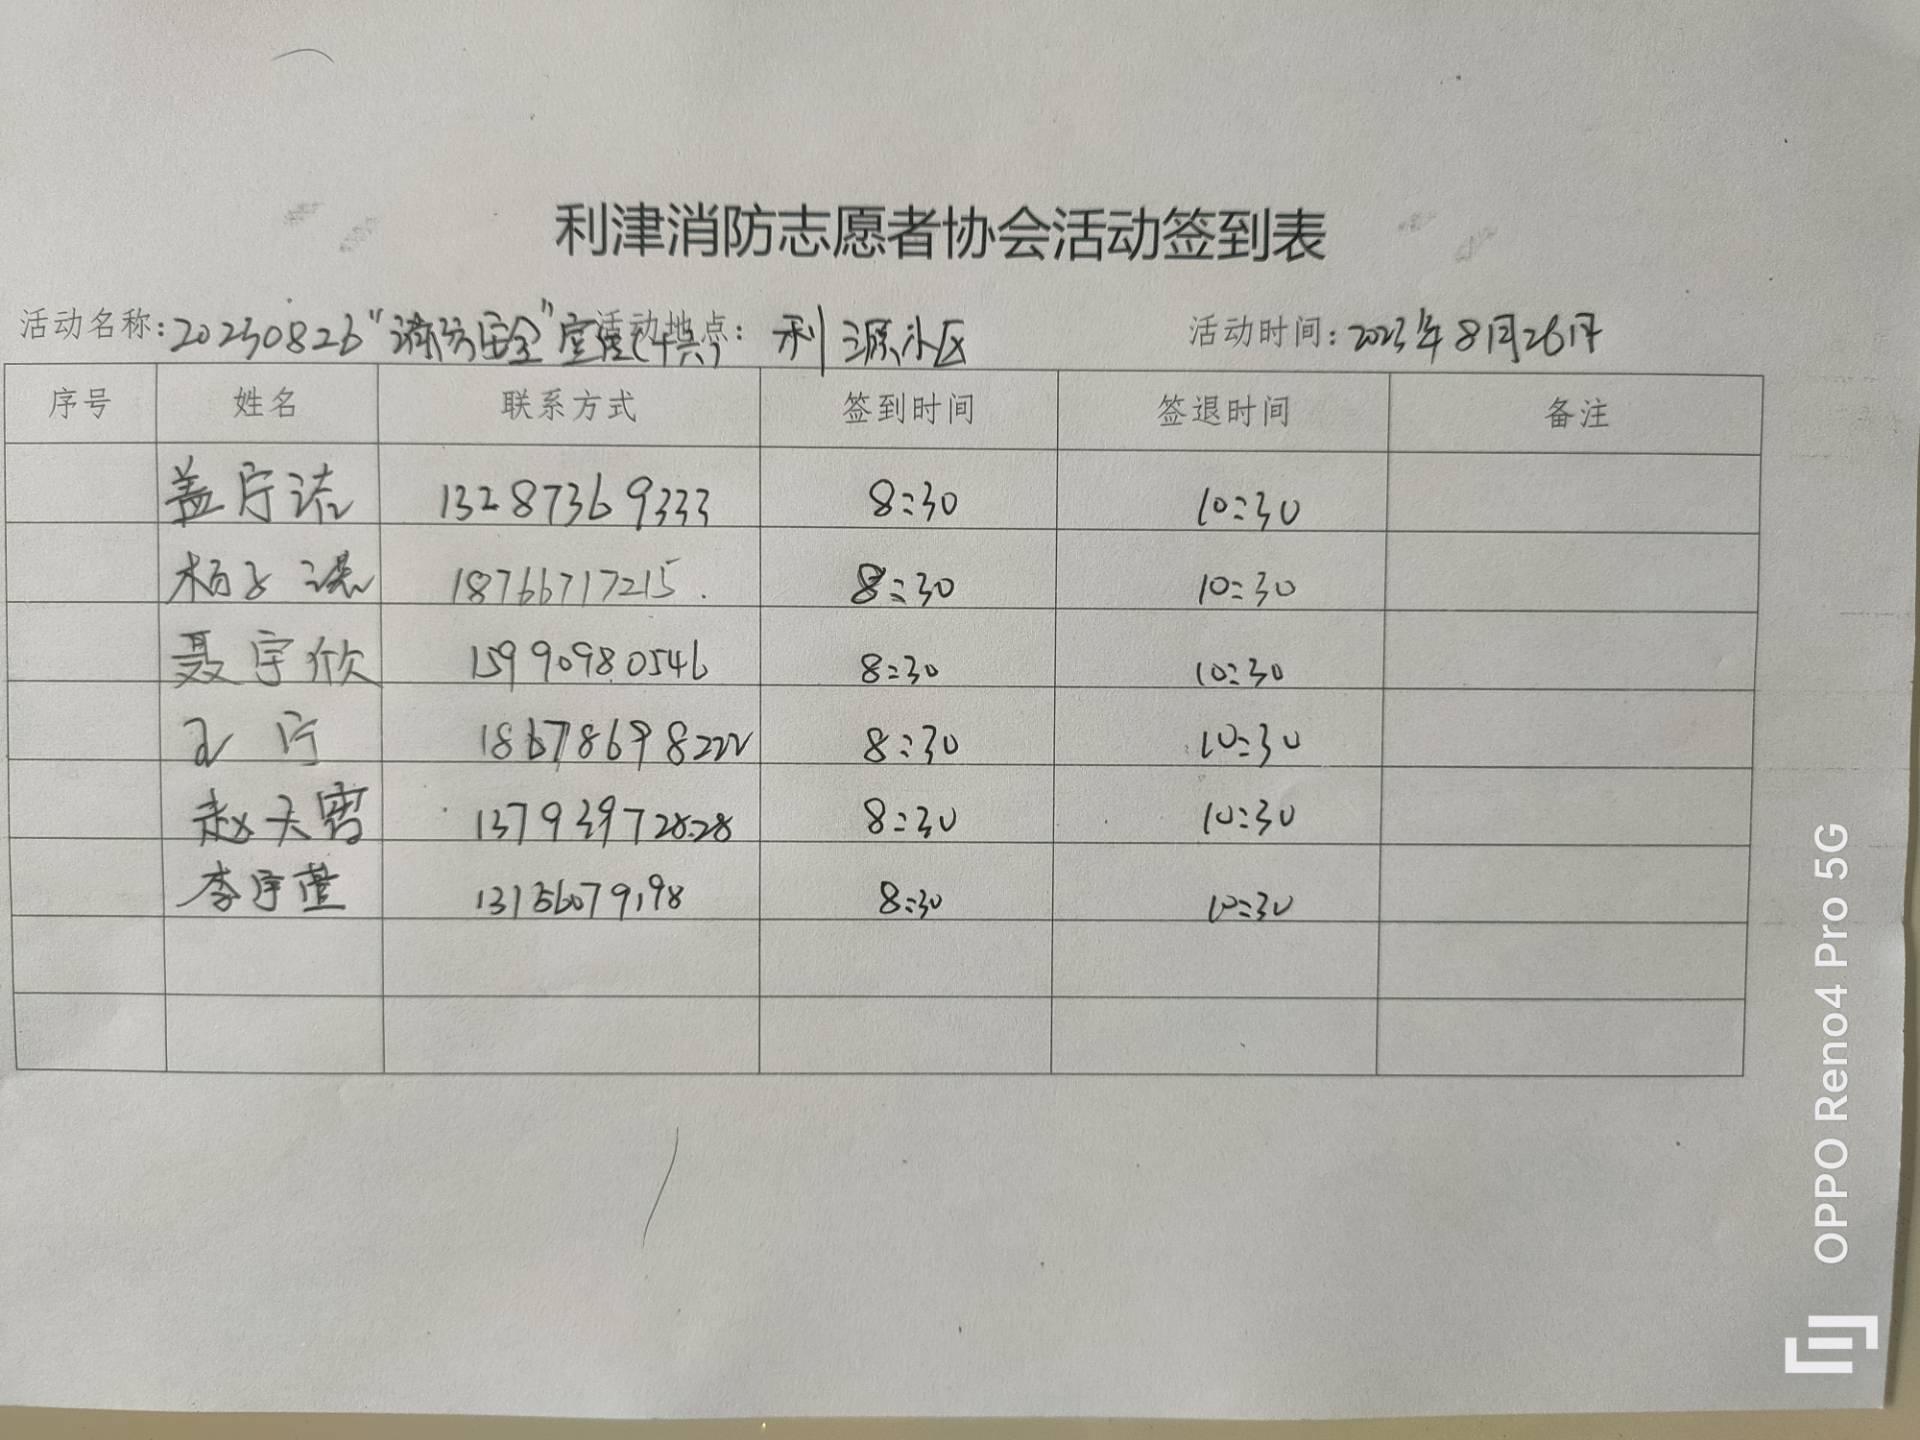 利津消防志愿者协会活动签到表
活动名称:20230826“消防安全”宣传 活动地点: 利源小区 活动时间:2023年8月26日
序号 姓名 联系方式 签到时间 签退时间 备注
盖宁 13287369333 8:30 10:30
杨 18766717215. 8:30 10:30
聂宇欣 15990980546 8:30 10:30
宁 18678698222 8:30 10:30
赵天雪 13793972828 8:30 10:30
李宇萱 13156079198 8:30 10:30
OPPO Reno4 Pro 5G